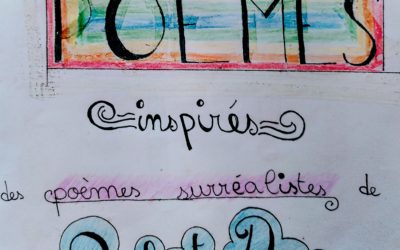 POÈMES
inspirés
des poèmes surréalistes de